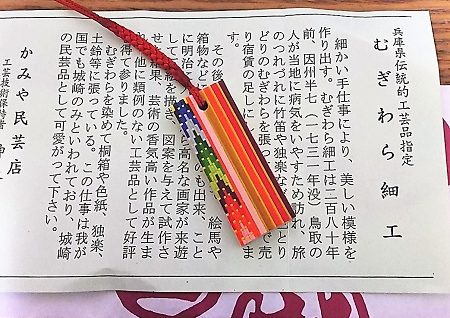 兵庫県伝統的工芸品指定
むぎわら細工
細かい手仕事により、美しい模様を
作り出す。むぎわら細工は二百八十年
前、因州半七(一七三一年没)鳥取の
人が当地に病気をいやすため訪れ、旅
のつれづれに竹笛や独楽など
どりのむぎわらを張っ で売
り宿賃の足しに
その後
箱物など 絵馬や
に明治こ のも出来、こと
して下絵を描き ら高名な画家が来遊
した結果、芸術の香気高い 図案を与えて試作さ
て他に類例のない工芸品として好評 作品が生ま
を得て参りました。
むぎわらを染めて桐箱や色紙、独楽、
土鈴等に張っている。この仕事は我が
国でも城崎のみといわれており、城崎
の民芸品として可愛がって下さい。
かみや民芸店
工芸技術保持者 神